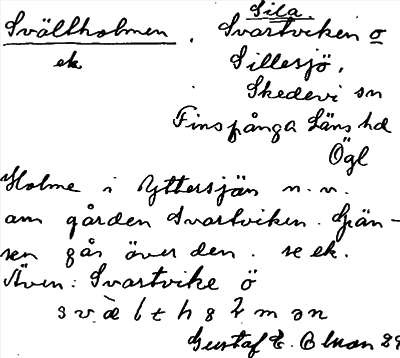 Sila.
Svältholmen . Svartviken o
ek Sillesjö,
Skedevi sn
Finspånga Läns hd
Ögl
Holme i Yttersjön n.v.
om gården Svartviken. Grän-
sen går över den. se ek.
Även: Svartvike ö
Gustaf E.